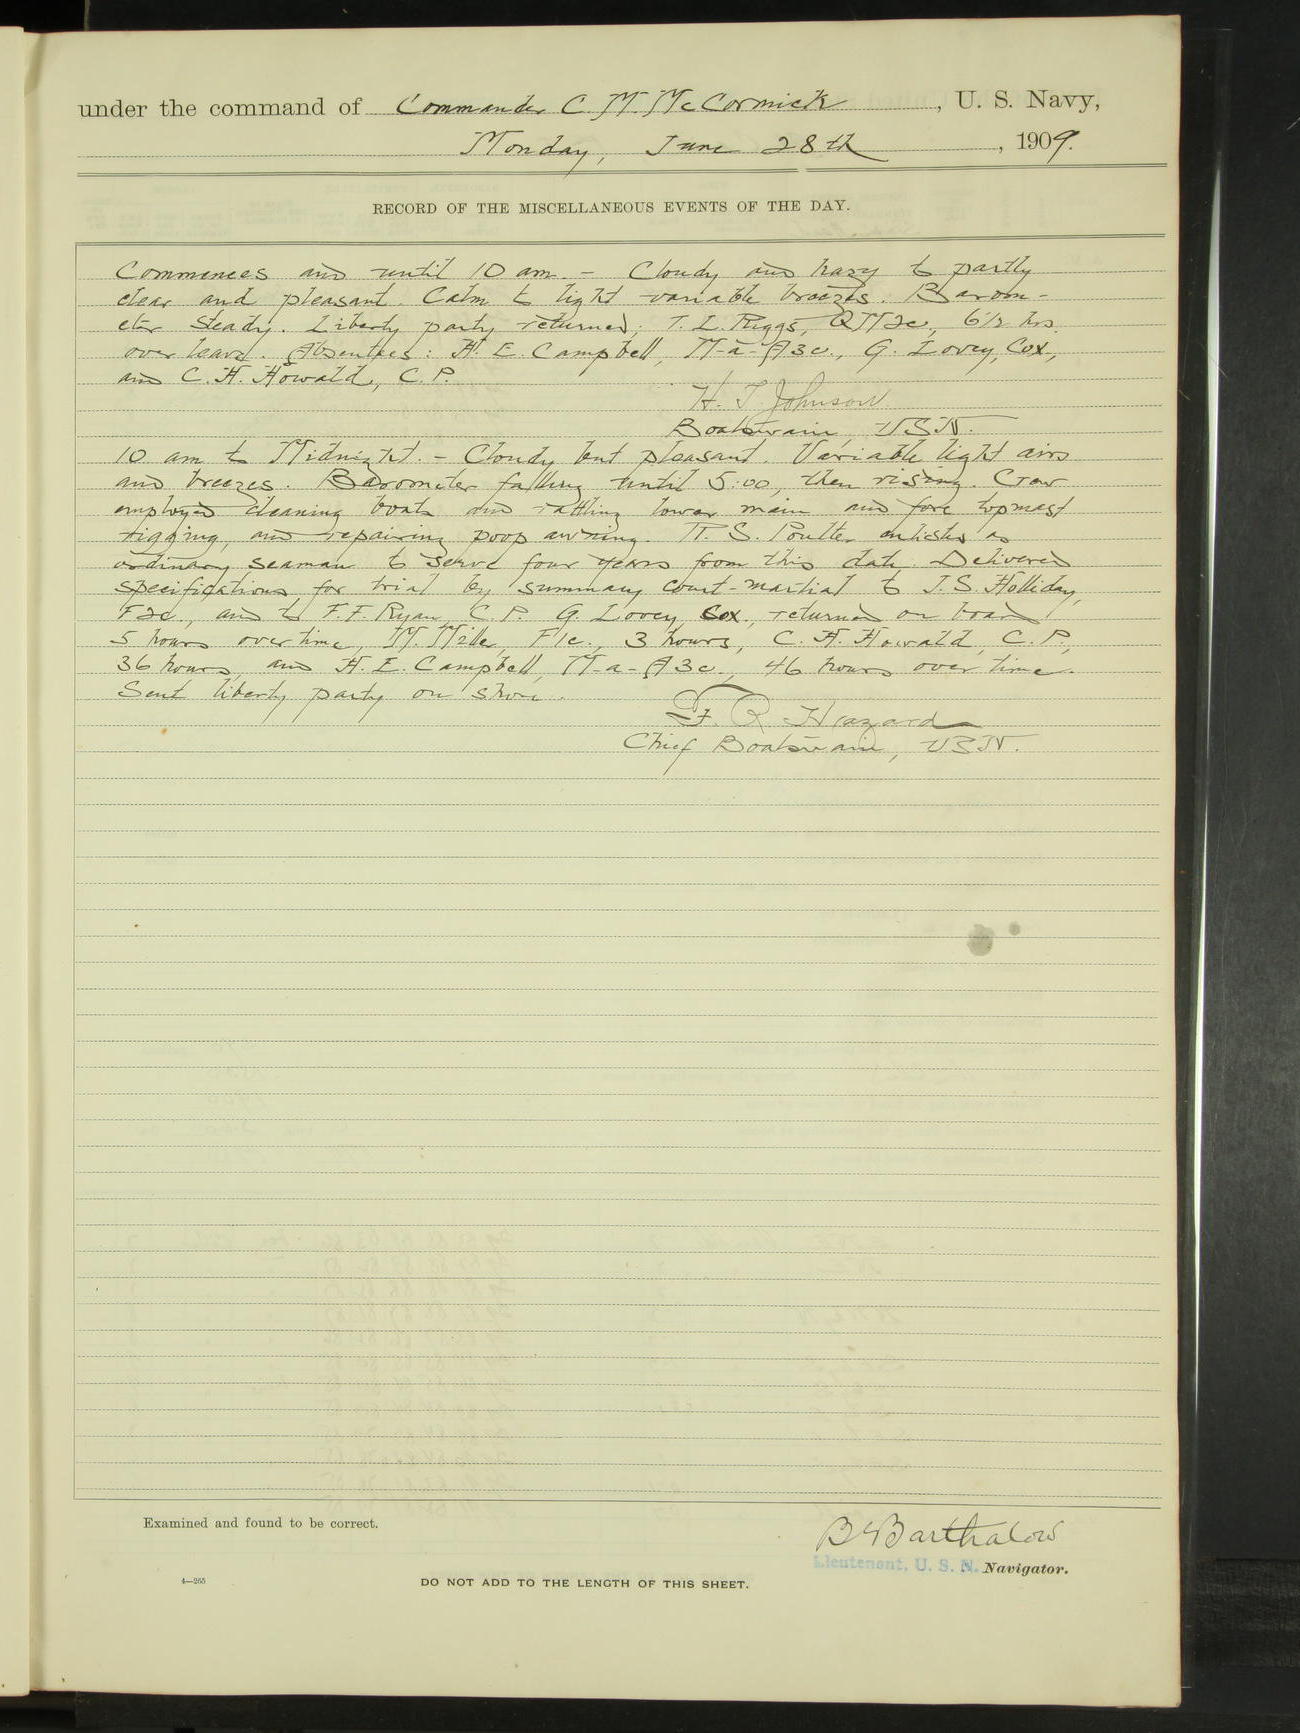 under the command of Commander C. M. McCormick, U. S. Navy,
Monday, June 28th, 1909.
RECORD OF THE MISCELLANEOUS EVENTS OF THE DAY.
Commences and until 10 am. - Cloudy and hazy to partly
clear and pleasant. Calm to light variable breezes. Barom-
eter steady. Liberty party returned; T. L. Riggs, QM2c, 6 1/2 hrs.
over leave. Absentees: H. E. Campbell, M-a-A3c., G. Lovey, Cox,
and C. H. Howald, C.P.
H. T. Johnson
Boatswain, USN.
10 am to Midnight. - Cloudy but pleasant. Variable light airs
and breezes. Barometer falling until 5:00, then rising. Crew
employed cleaning boats and rattling lower main and fore topmast
rigging, and repairing poop awning. S. Poulter enlisted as
ordinary seaman to serve four years from this date. Delivered
specifications for trial by summary court-martial to J. S. Holliday,
F2c., and to F. F. Ryan, C.P. G. Lovey, Cox., returned on board
5 hours over time, M. Miller, F1c, 3 hours, C. H. Howald, C.P.,
36 hours, and H. E. Campbell, M-a-A3c., 46 hours over time.
Sent liberty party on shore.
F. R. Hazard
Chief Boatswain, USN.
Examined and found to be correct.
Barthalow
Lieutenant, U. S. N. Navigator.
4—265
DO NOT ADD TO THE LENGTH OF THIS SHEET.